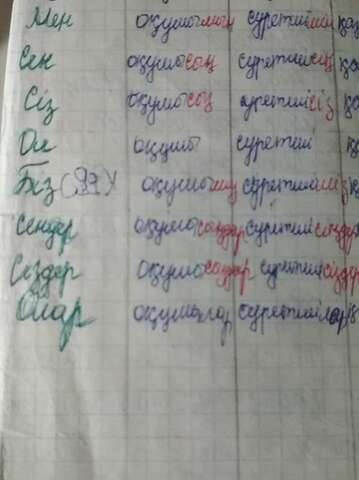 Мен оқушымын суретшімін қа
Сен оқушысың суретшісің қ
Сіз оқушысыз суретшісіз қ
Ол оқушы суретші қ
Біз оқушымыз суретшіміз қ
Сендер оқушысыңдар суретшісіңдер
Сіздер оқушысыздар суретшісіздер
Олар оқушылар суретшілер